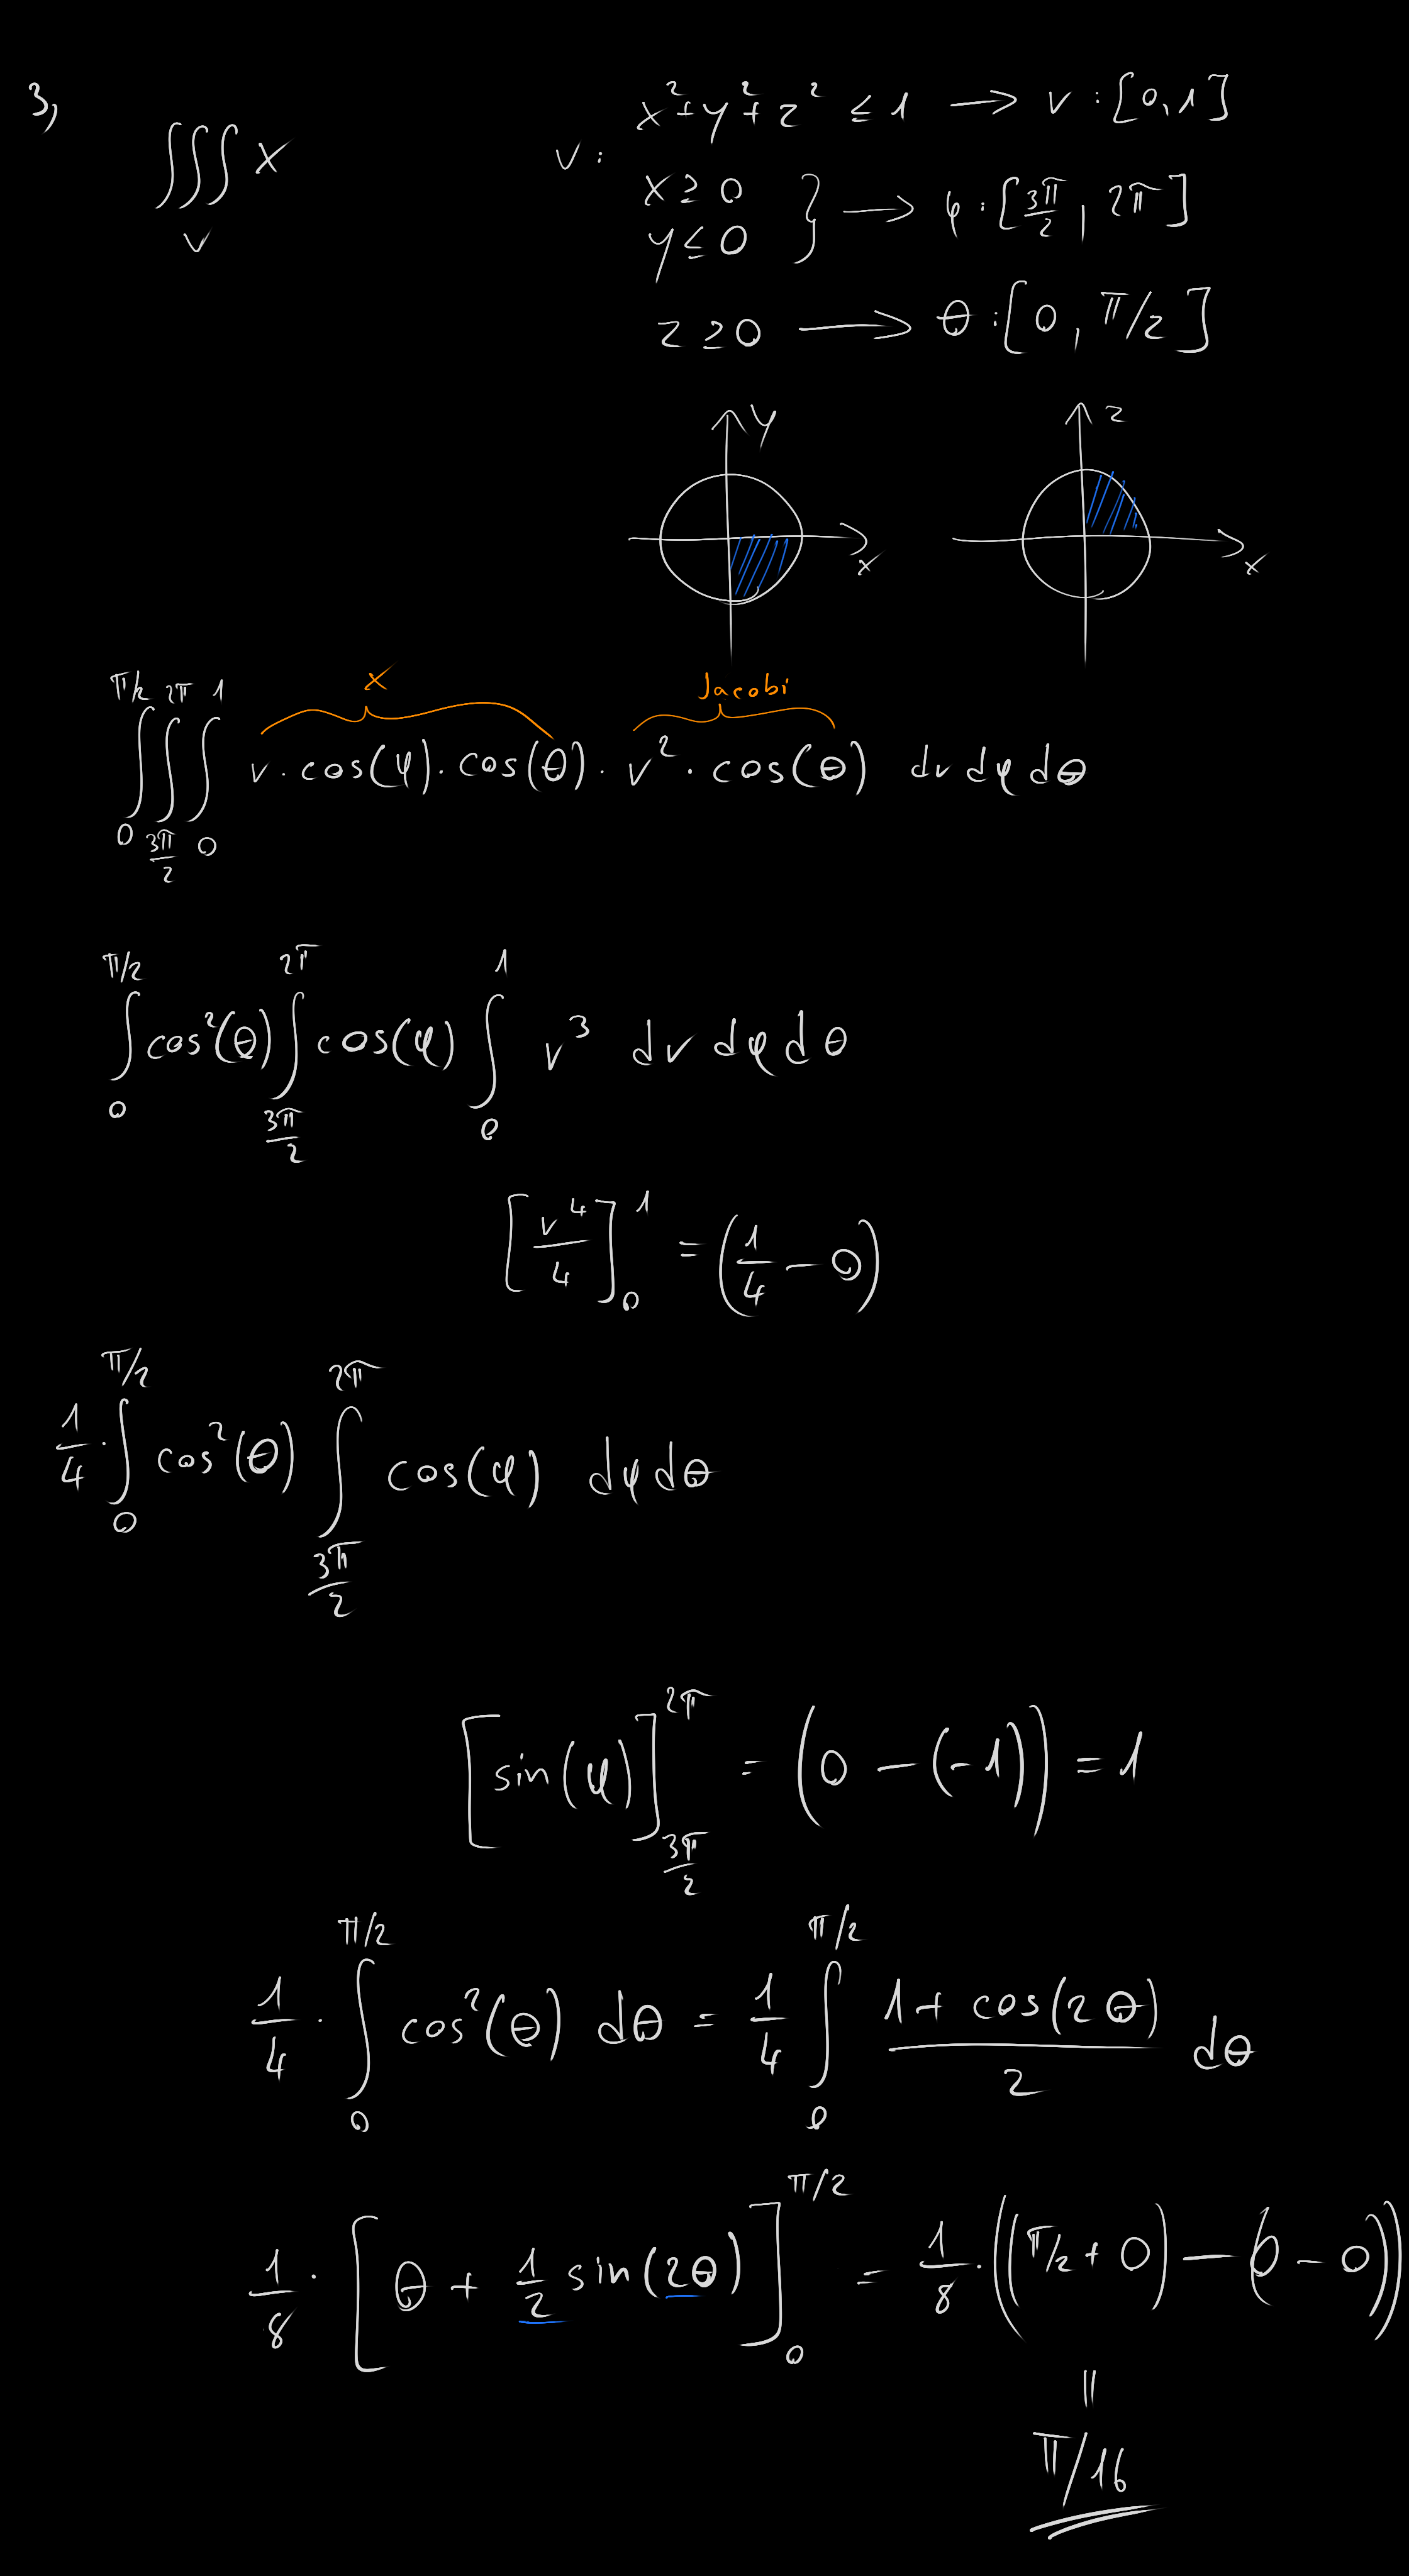 3, ∭ x
V
V: x² + y² + z² ≤ 1 → r : [0, 1]
x ≥ 0
y ≤ 0 } → φ : [3π/2, 2π]
z ≥ 0 → θ : [0, π/2]
y x z x
x Jacobi
∫₀^{π/2} ∫_{3π/2}^{2π} ∫₀^1 r · cos(φ) · cos(θ) · r² · cos(θ) dr dφ dθ
∫₀^{π/2} cos²(θ) ∫_{3π/2}^{2π} cos(φ) ∫₀^1 r³ dr dφ dθ
[r⁴/4]₀^1 = (1/4 − 0)
1/4 · ∫₀^{π/2} cos²(θ) ∫_{3π/2}^{2π} cos(φ) dφ dθ
[sin(φ)]_{3π/2}^{2π} = (0 − (−1)) = 1
1/4 · ∫₀^{π/2} cos²(θ) dθ = 1/4 ∫₀^{π/2} (1 + cos(2θ))/2 dθ
1/8 · [θ + 1/2 sin(2θ)]₀^{π/2} = 1/8 · ((π/2 + 0) − (0 − 0))
=
π/16